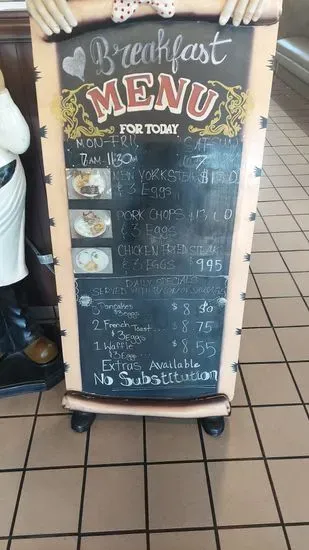 Breakfast
MENU
FOR TODAY
MON-FRI SAT-SUN
7AM-11:30
NEW YORK STEAK
& 3 Eggs
PORK CHOPS
& 3 Eggs
CHICKEN FRIED STEAK
& 3 EGGS $9.95
DAILY SPECIALS
SERVED WITH
3 Pancakes $8.50
& 3 eggs
2 French Toast... $8.75
& 3 eggs
1 Waffle $8.55
& 3 Eggs...
Extras Available
No Substitution